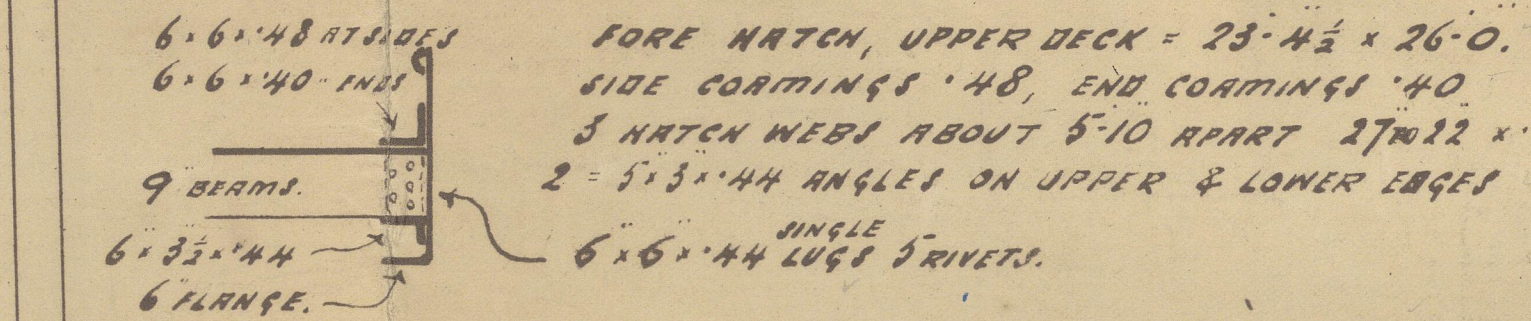 6 × 6 × ·48 AT SIDES
6 × 6 × ·40 " ENDS
9" BEAMS.
6" × 3½" × ·44
6" FLANGE.
FORE HATCH, UPPER DECK = 23'-4½" × 26'-0".
SIDE COAMINGS ·48, END COAMINGS ·40
3 HATCH WEBS ABOUT 5'-10" APART 27" TO 22" × ·
2 = 5" × 3" × ·44 ANGLES ON UPPER & LOWER EDGES
6" × 6" × ·44 SINGLE LUGS 5 RIVETS.